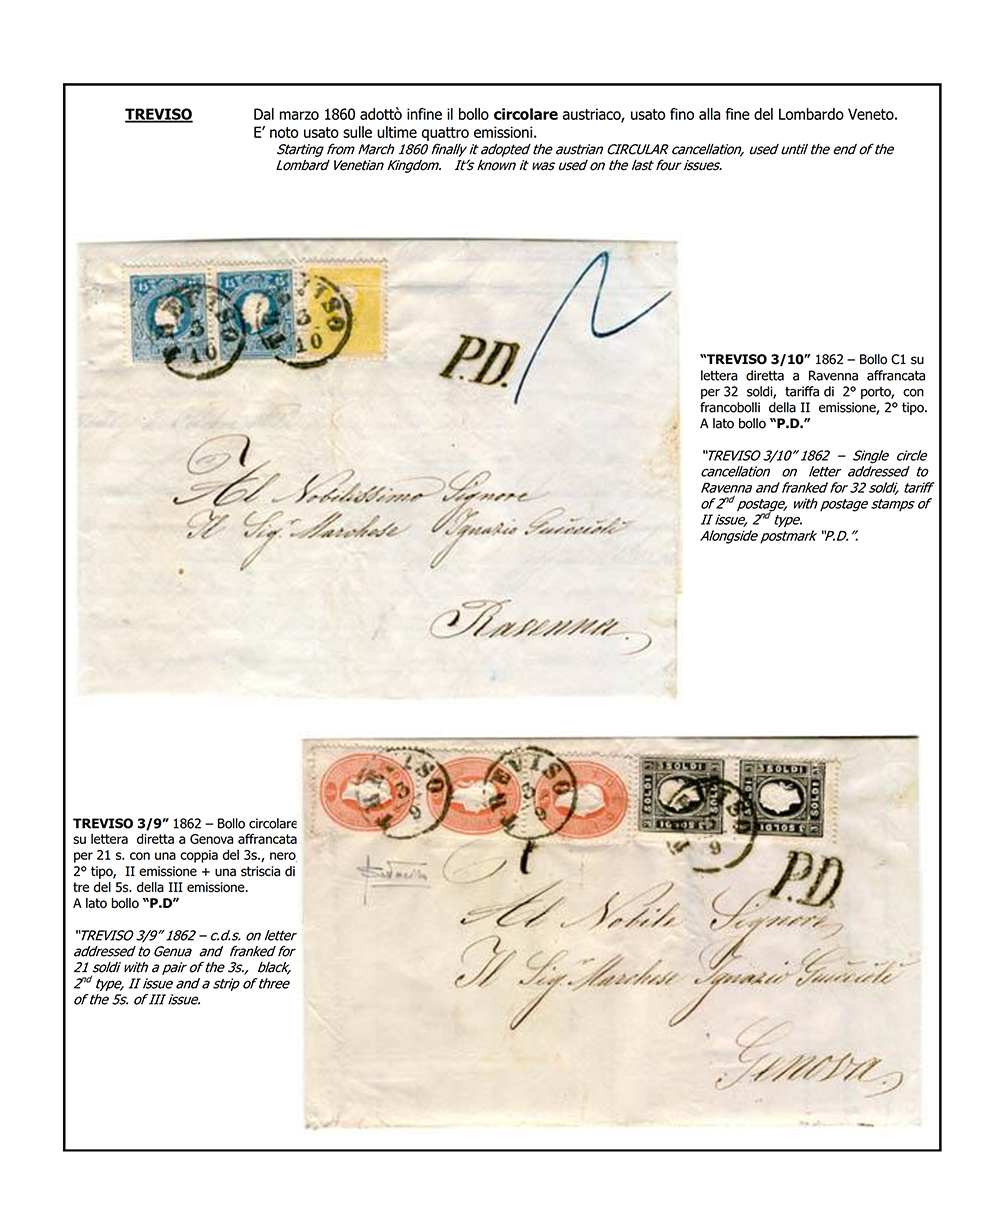 TREVISO
Dal marzo 1860 adottò infine il bollo circolare austriaco, usato fino alla fine del Lombardo Veneto.
E’ noto usato sulle ultime quattro emissioni.
Starting from March 1860 finally it adopted the austrian CIRCULAR cancellation, used until the end of the
Lombard Venetian Kingdom. It’s known it was used on the last four issues.
15 15
TREVISO
3
10
TREVISO
3
10
P.D.
Al Nobilissimo Signore
Il Sigr Marchese Ignazio Guiccioli
Ravenna
“TREVISO 3/10” 1862 – Bollo C1 su
lettera diretta a Ravenna affrancata
per 32 soldi, tariffa di 2° porto, con
francobolli della II emissione, 2° tipo.
A lato bollo “P.D.”
“TREVISO 3/10” 1862 – Single circle
cancellation on letter addressed to
Ravenna and franked for 32 soldi, tariff
of 2nd postage, with postage stamps of
II issue, 2nd type.
Alongside postmark “P.D.”.
TREVISO
3
9
TREVISO
3
9
TREVISO
9
3 SOLDI 3 SOLDI
P.D.
Al Nobile Signore
Il Sigr Marchese Ignazio Guiccioli
Genova
TREVISO 3/9” 1862 – Bollo circolare
su lettera diretta a Genova affrancata
per 21 s. con una coppia del 3s., nero,
2° tipo, II emissione + una striscia di
tre del 5s. della III emissione.
A lato bollo “P.D”
“TREVISO 3/9” 1862 – c.d.s. on letter
addressed to Genua and franked for
21 soldi with a pair of the 3s., black,
2nd type, II issue and a strip of three
of the 5s. of III issue.